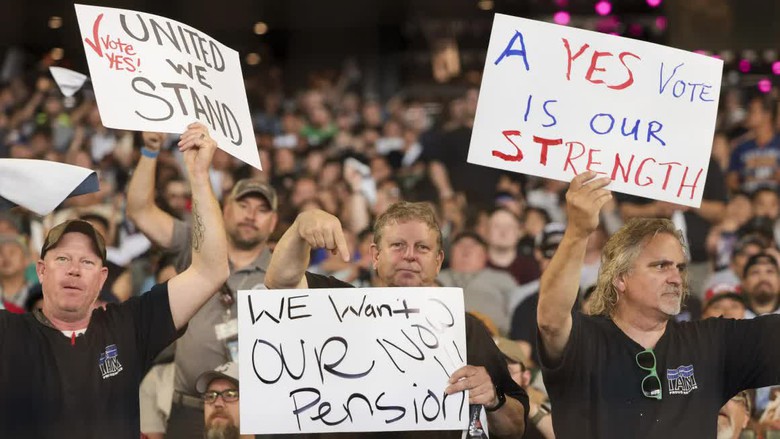 UNITED
✓Vote WE
YES! STAND
A YES Vote
IS OUR
STRENGTH
WE Want
OUR NOW!!!
Pension
IAM
IAM